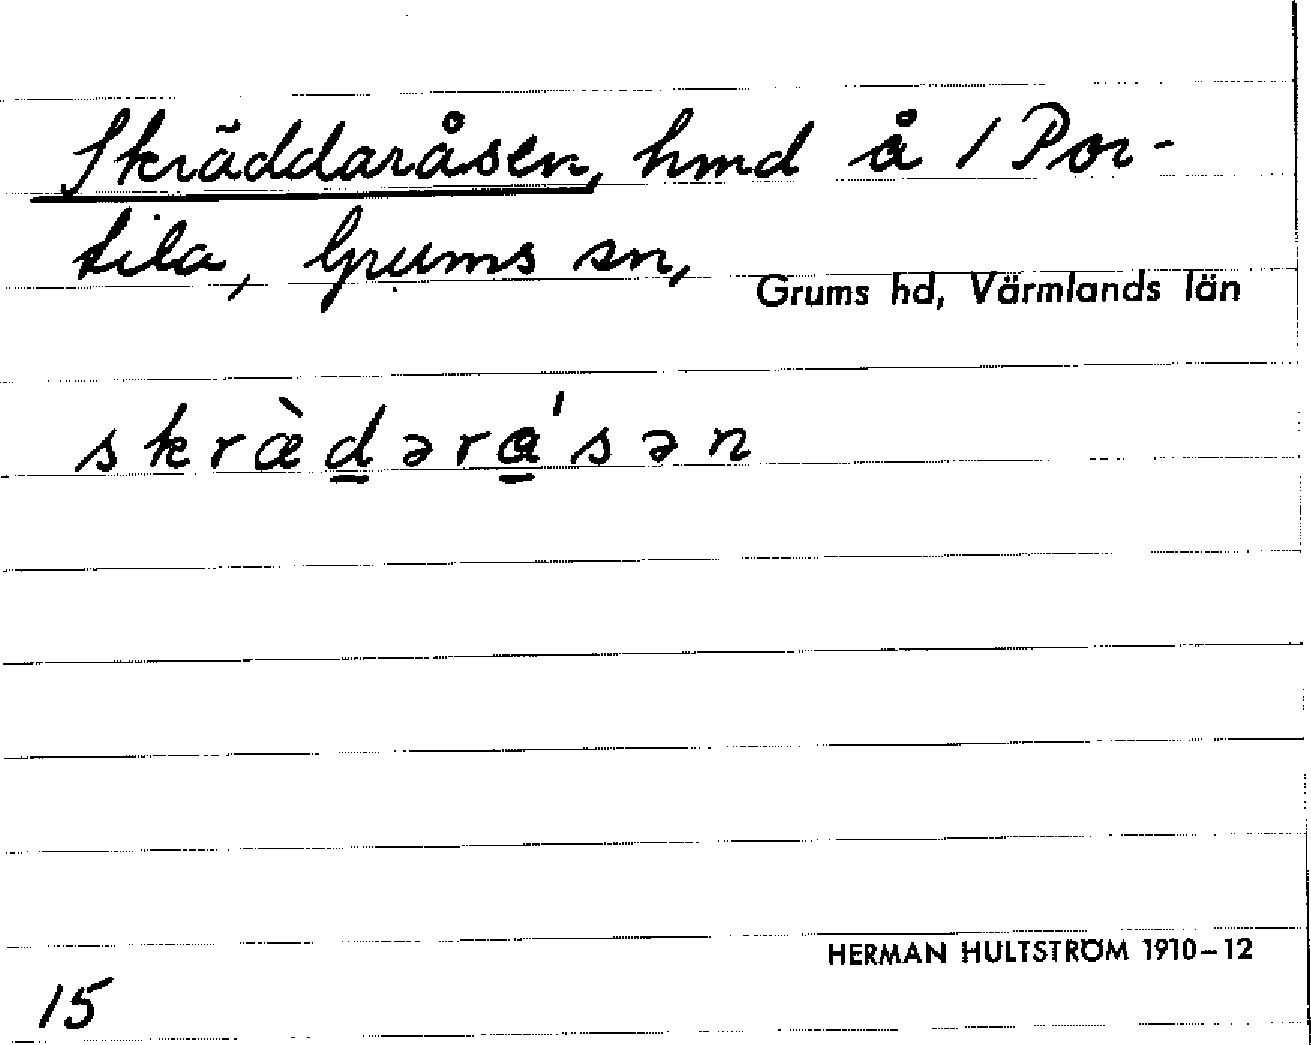 Skräddaråsen, hmd å 1 Por-
tila, Grums sn, Grums hd, Värmlands län
skræ̀d̲ərα̲'sən
HERMAN HULTSTRÖM 1910–12
15